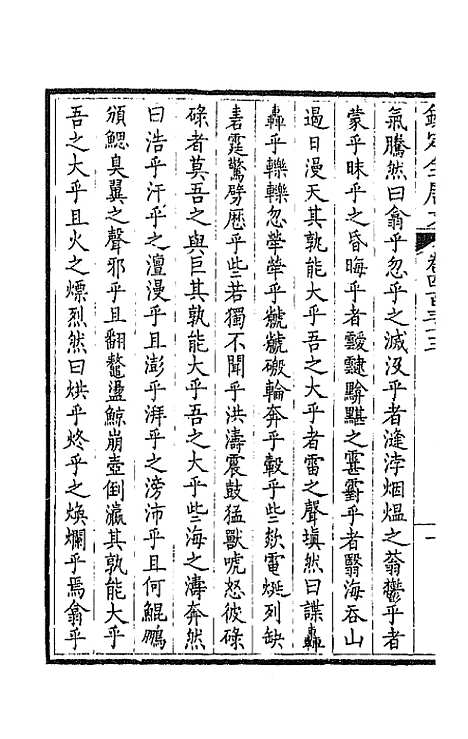 欽定全唐文 卷四百三十三 一
氣騰然曰翕乎忽乎之滅沒乎者漨浡烟熅之蓊鬱乎者
蒙乎昧乎之昏晦乎者靉靆黭黮之霮䨴乎者翳海吞山
過日漫天其孰能大乎吾之大乎者雷之聲塡然曰諜轟
轟乎轢轢忽犖犖乎虩虩礟輪奔乎轂乎些欻電烻列缺
砉霆驚劈歷乎些若獨不聞乎洪濤震鼓猛獸唬怒彼碌
碌者莫吾之與巨其孰能大乎吾之大乎些海之濤奔然
曰浩乎汗乎之澶漫乎且澎乎湃乎之滂沛乎且何鯤鵬
頒鰓臭翼之聲邪乎且翻鼇盪鯨崩壺倒瀛其孰能大乎
吾之大乎且火之熛烈然曰烘乎炵乎之煥爛乎焉翕乎